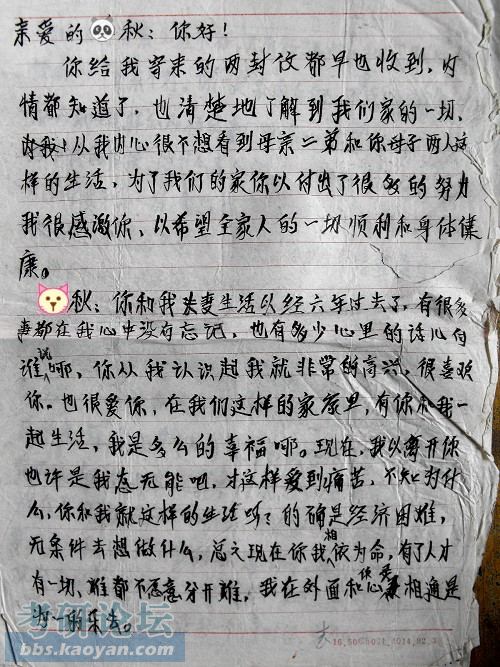 亲爱的 秋:你好!
你给我寄来的两封仪都早也收到,灯
情都知道了,也清楚地了解到我们家的一切、
从我内心很不想看到母亲二弟和你母子两人这
样的生活,为了我们的家你以付出了很多的努力
我很感激你、以希望全家人的一切顺利和身体健
康。
秋:你和我夫妻生活以经六年过去了,有很多
事都在我心中没有忘记,也有多少心里的话儿向
谁说哪,你从我认识起我就非常的高兴,很喜欢
你。也很爱你,在我们这样的家庭里,有你和我一
起生活,我是多么的幸福哪。现在,我以离开你
也许是我太无能吧,才这样受到痛苦,不知为什
么,你和我就这样的生活呀?的确是经济困难,
无条件去想做什么,总之现在你我相依为命,有了人才
有一切、谁都不愿意分开谁,我在外面和你心灵相通是
唯一的乐
考研论坛
bbs.kaoyan.com